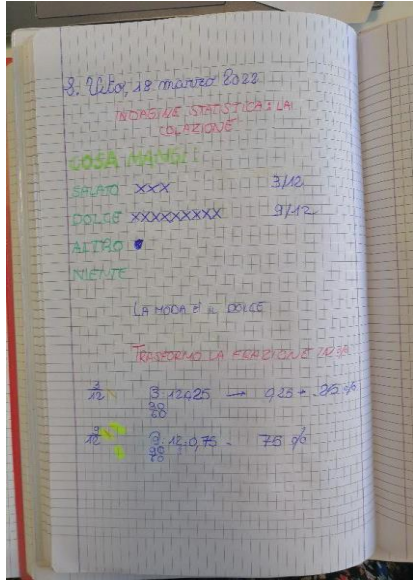 S. Vito, 18 marzo 2022
INDAGINE STATISTICA: LA
COLAZIONE
COSA MANGI
SALATO XXX 3/12
DOLCE XXXXXXXXX 9/12
ALTRO
NIENTE
LA MODA È IL DOLCE
TRASFORMO LA FRAZIONE IN %
3/12 3:12 0,25 → 0,25 = 25 %
9/12 9:12 0,75 - 75 %